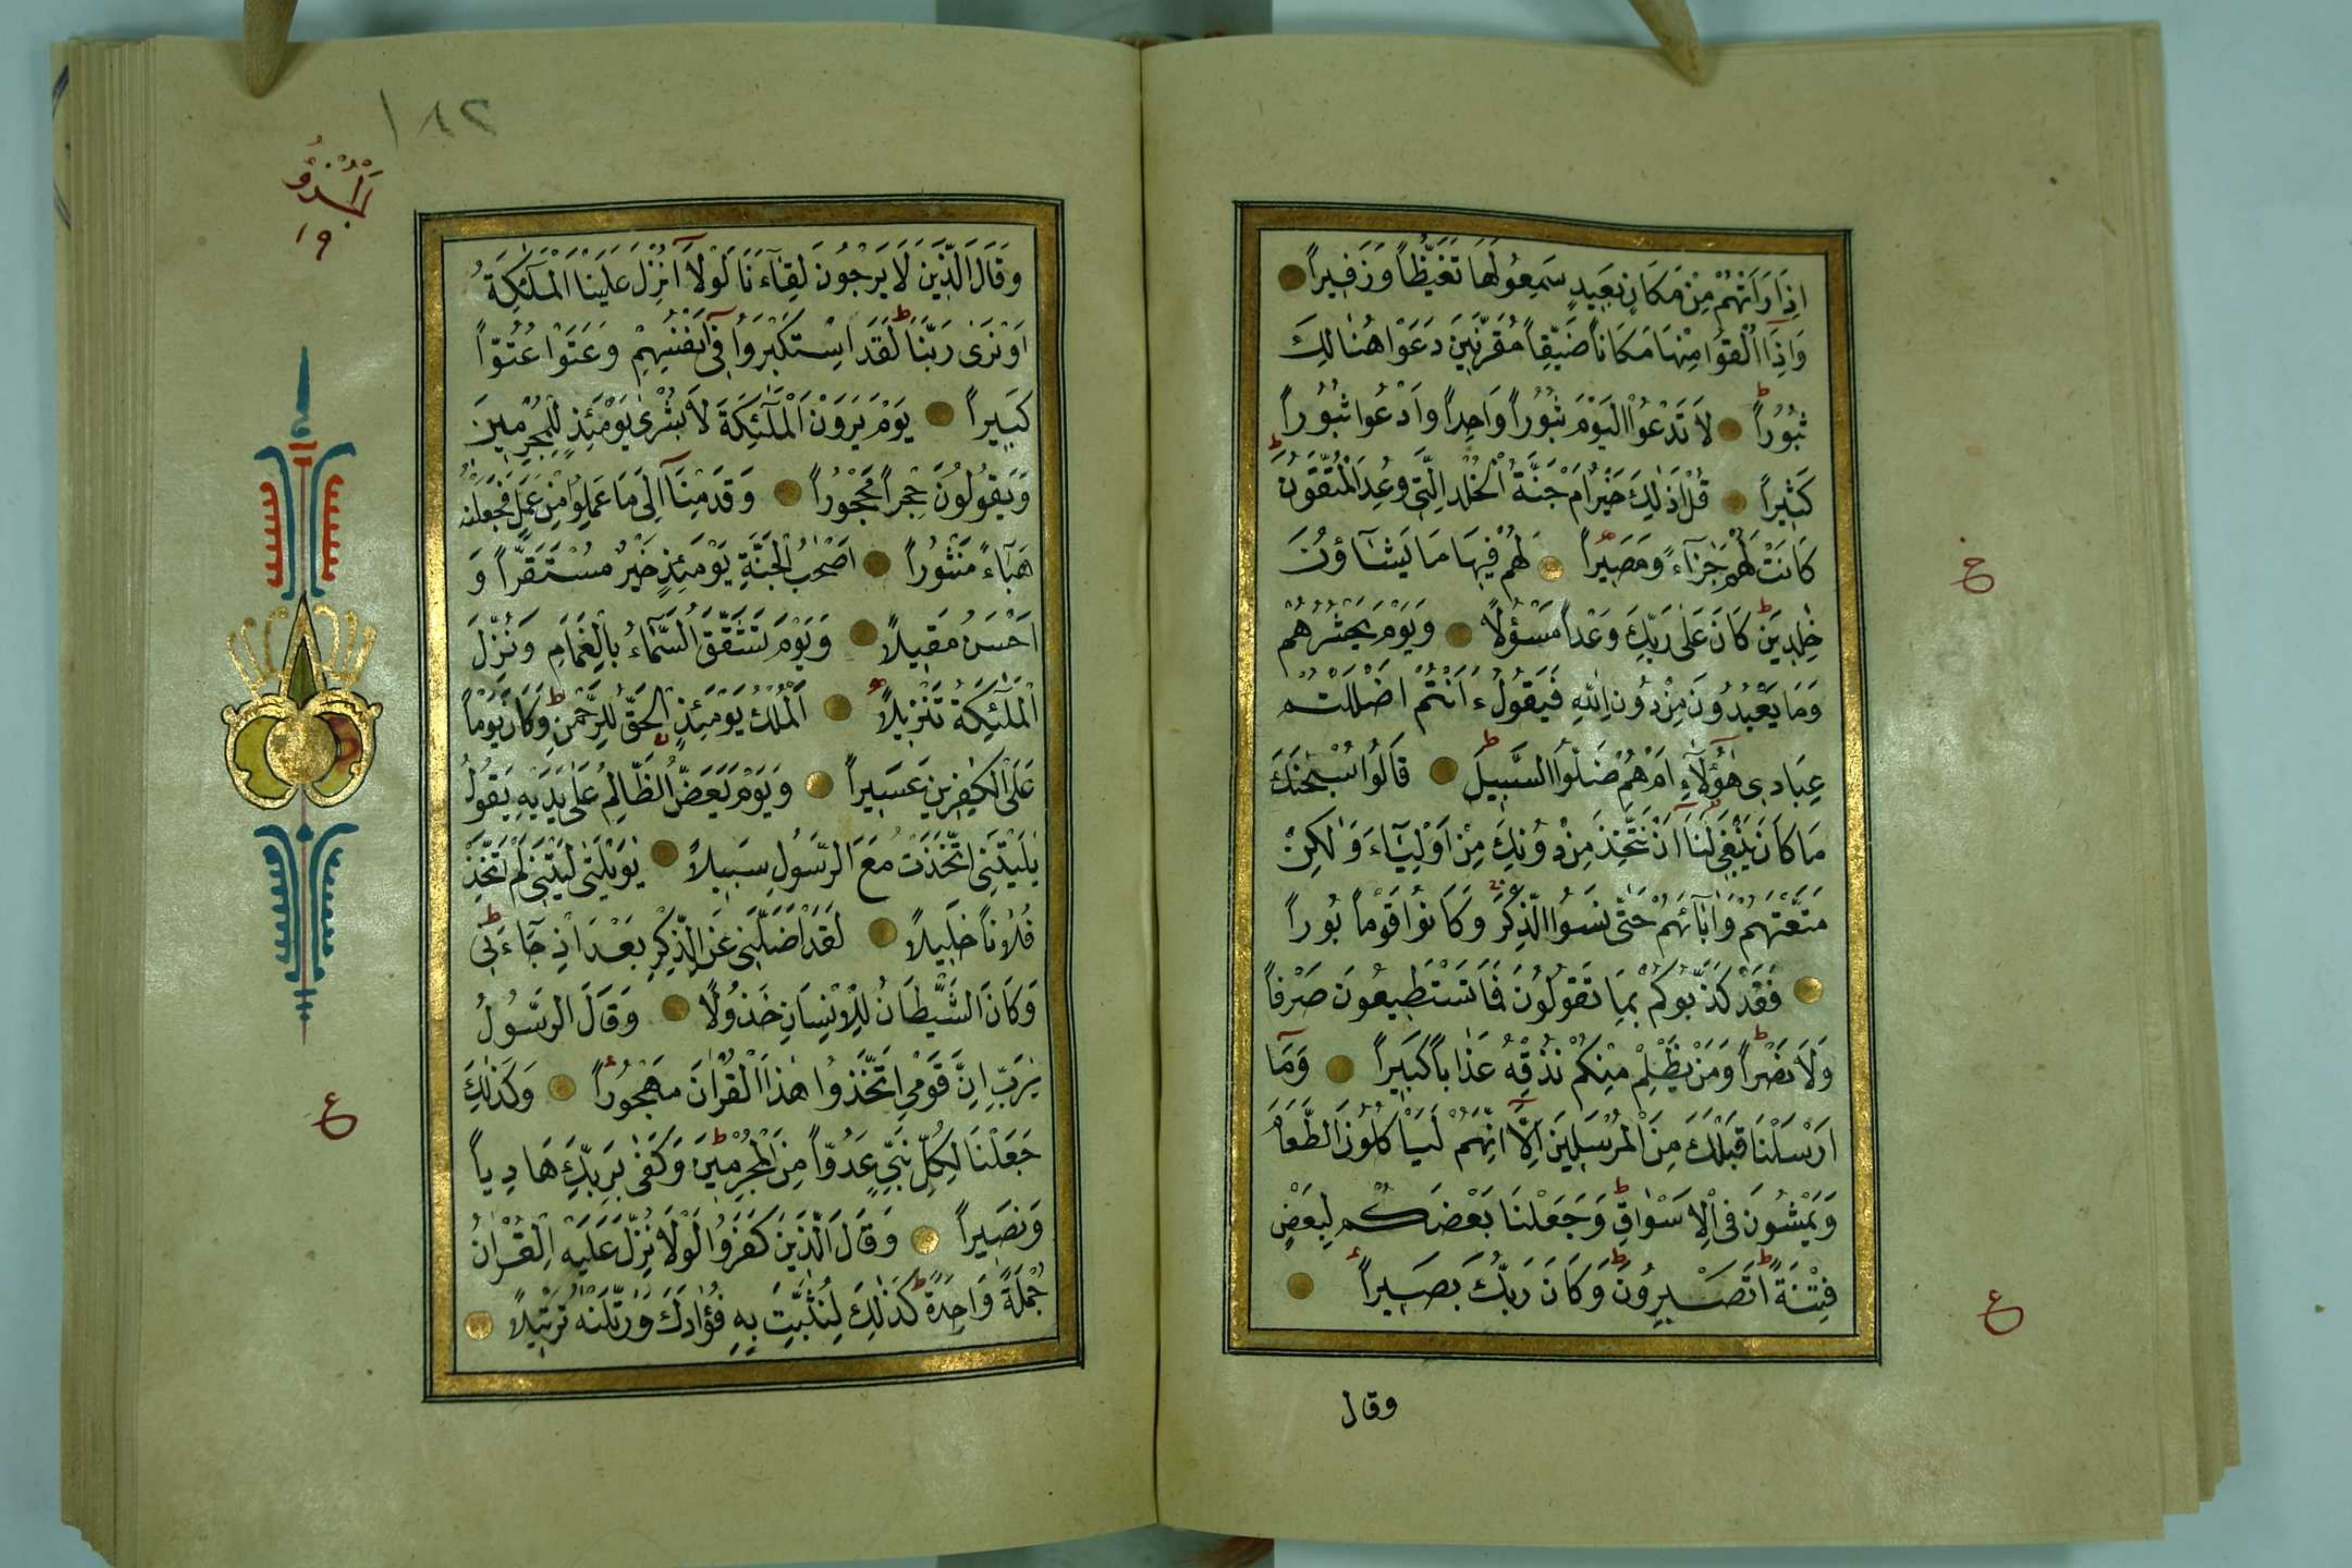 اِذَا رَاَتْهُمْ مِنْ مَكَانٍ بَعِيدٍ سَمِعُوا لَهَا تَغَيُّظاً وَزَفِيراً
وَاِذَا اُلْقُوا مِنْهَا مَكَاناً ضَيِّقاً مُقَرَّنِينَ دَعَوْا هُنَالِكَ
ثُبُوراً لَا تَدْعُوا الْيَوْمَ ثُبُوراً وَاحِداً وَادْعُوا ثُبُوراً
كَثِيراً قُلْ اَذٰلِكَ خَيْرٌ اَمْ جَنَّةُ الْخُلْدِ الَّتِي وُعِدَ الْمُتَّقُونَ
كَانَتْ لَهُمْ جَزَآءً وَمَصِيراً لَهُمْ فِيهَا مَا يَشَاؤُنَ
خٰلِدِينَ كَانَ عَلٰى رَبِّكَ وَعْداً مَسْؤُلاً وَيَوْمَ يَحْشُرُهُمْ
وَمَا يَعْبُدُونَ مِنْ دُونِ اللّٰهِ فَيَقُولُ ءَاَنْتُمْ اَضْلَلْتُمْ
عِبَادِى هٰؤُلَآءِ اَمْ هُمْ ضَلُّوا السَّبِيلَ قَالُوا سُبْحٰنَكَ
مَا كَانَ يَنْبَغِى لَنَا اَنْ نَتَّخِذَ مِنْ دُونِكَ مِنْ اَوْلِيَآءَ وَلٰكِنْ
مَتَّعْتَهُمْ وَاٰبَآئَهُمْ حَتّٰى نَسُوا الذِّكْرَ وَكَانُوا قَوْماً بُوراً
فَقَدْ كَذَّبُوكُمْ بِمَا تَقُولُونَ فَمَا تَسْتَطِيعُونَ صَرْفاً
وَلَا نَصْراً وَمَنْ يَظْلِمْ مِنْكُمْ نُذِقْهُ عَذَاباً كَبِيراً وَمَآ
اَرْسَلْنَا قَبْلَكَ مِنَ الْمُرْسَلِينَ اِلَّآ اِنَّهُمْ لَيَاْكُلُونَ الطَّعَامَ
وَيَمْشُونَ فِى الْاَسْوَاقِ وَجَعَلْنَا بَعْضَكُمْ لِبَعْضٍ
فِتْنَةً اَتَصْبِرُونَ وَكَانَ رَبُّكَ بَصِيراً
وقال
خ
ع
١٨٢
الجزؤ
١٩
وَقَالَ الَّذِينَ لَا يَرْجُونَ لِقَآءَنَا لَوْلَا اُنْزِلَ عَلَيْنَا الْمَلٰٓئِكَةُ
اَوْ نَرٰى رَبَّنَا لَقَدِ اسْتَكْبَرُوا فِى اَنْفُسِهِمْ وَعَتَوْا عُتُوّاً
كَبِيراً يَوْمَ يَرَوْنَ الْمَلٰٓئِكَةَ لَا بُشْرٰى يَوْمَئِذٍ لِلْمُجْرِمِينَ
وَيَقُولُونَ حِجْراً مَحْجُوراً وَقَدِمْنَآ اِلٰى مَا عَمِلُوا مِنْ عَمَلٍ فَجَعَلْنٰهُ
هَبَآءً مَنْثُوراً اَصْحٰبُ الْجَنَّةِ يَوْمَئِذٍ خَيْرٌ مُسْتَقَرّاً وَ
اَحْسَنُ مَقِيلاً وَيَوْمَ تَشَقَّقُ السَّمَآءُ بِالْغَمَامِ وَنُزِّلَ
الْمَلٰٓئِكَةُ تَنْزِيلاً اَلْمُلْكُ يَوْمَئِذٍ الْحَقُّ لِلرَّحْمٰنِ وَكَانَ يَوْماً
عَلَى الْكٰفِرِينَ عَسِيراً وَيَوْمَ يَعَضُّ الظَّالِمُ عَلٰى يَدَيْهِ يَقُولُ
يٰلَيْتَنِى اتَّخَذْتُ مَعَ الرَّسُولِ سَبِيلاً يٰوَيْلَتٰى لَيْتَنِى لَمْ اَتَّخِذْ
فُلَاناً خَلِيلاً لَقَدْ اَضَلَّنِى عَنِ الذِّكْرِ بَعْدَ اِذْ جَآءَنِى
وَكَانَ الشَّيْطَانُ لِلْاِنْسَانِ خَذُولاً وَقَالَ الرَّسُولُ
يٰرَبِّ اِنَّ قَوْمِى اتَّخَذُوا هٰذَا الْقُرْاٰنَ مَهْجُوراً وَكَذٰلِكَ
جَعَلْنَا لِكُلِّ نَبِىٍّ عَدُوّاً مِنَ الْمُجْرِمِينَ وَكَفٰى بِرَبِّكَ هَادِياً
وَنَصِيراً وَقَالَ الَّذِينَ كَفَرُوا لَوْلَا نُزِّلَ عَلَيْهِ الْقُرْاٰنُ
جُمْلَةً وَاحِدَةً كَذٰلِكَ لِنُثَبِّتَ بِهِ فُؤَادَكَ وَرَتَّلْنٰهُ تَرْتِيلاً
ع